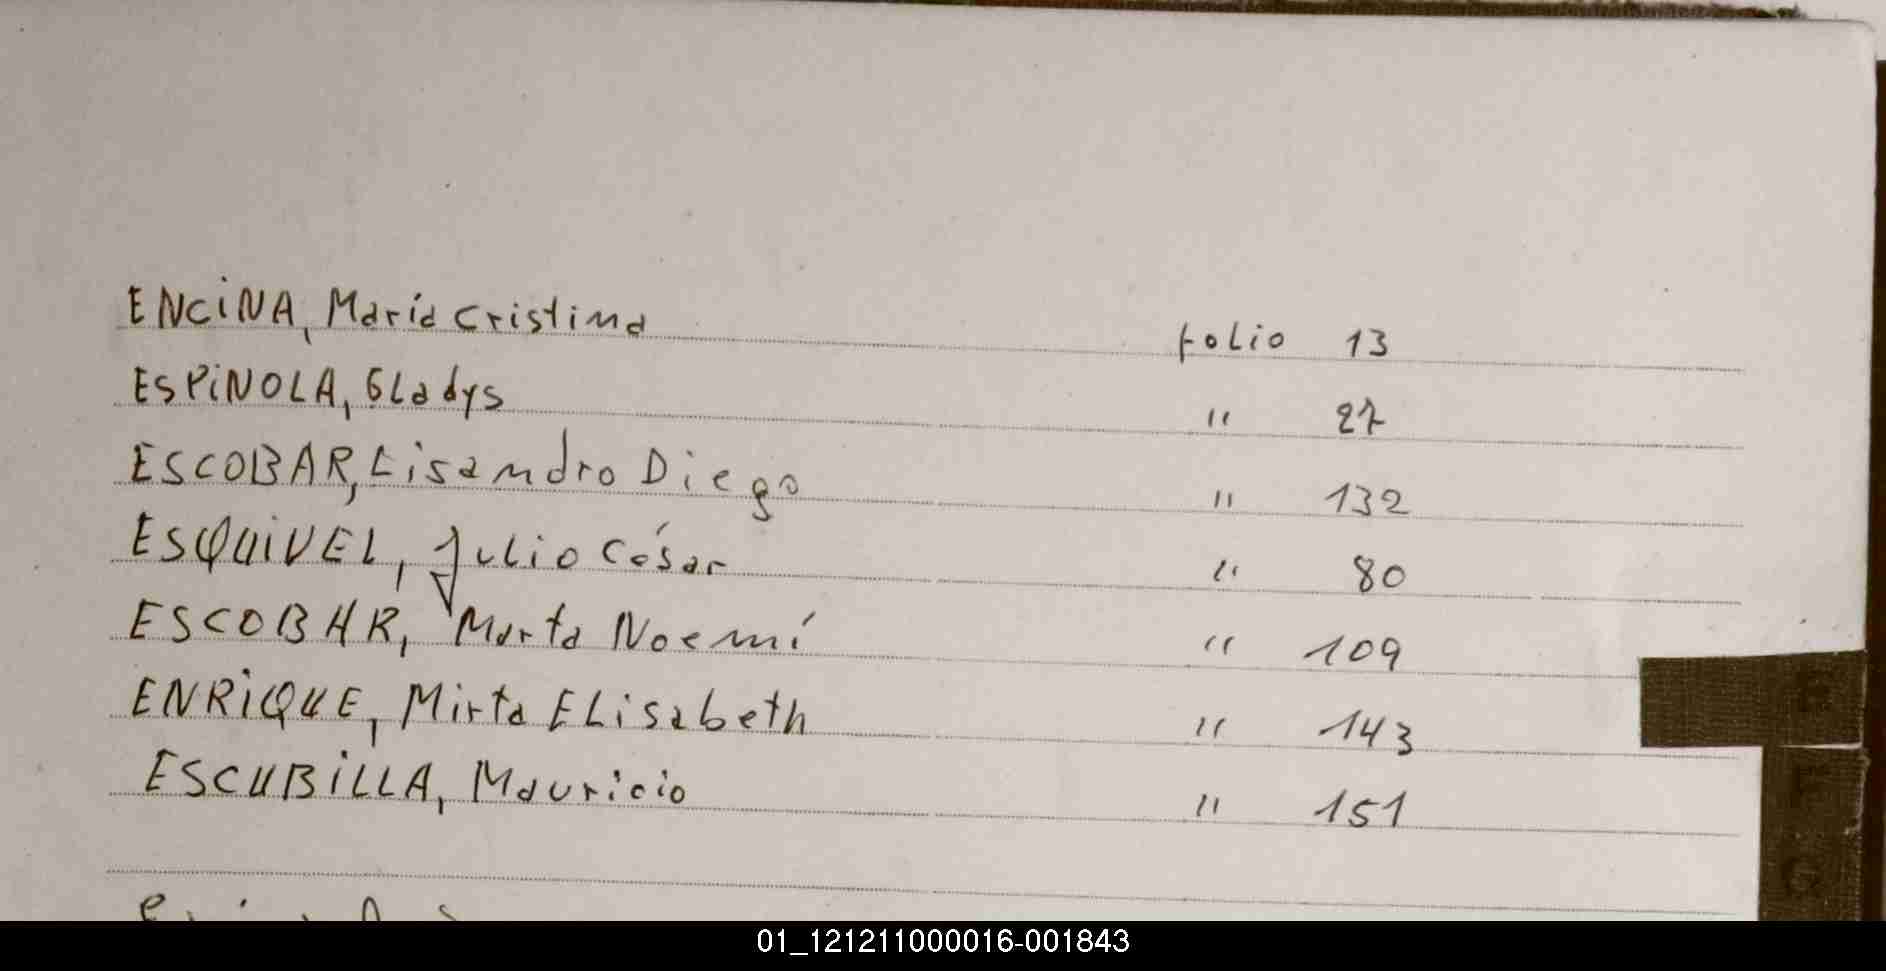 ENCINA, María Cristina folio 13
ESPINOLA, Gladys " 27
ESCOBAR, Lisandro Diego " 132
ESQUIVEL, Julio César " 80
ESCOBAR, Marta Noemí " 109
ENRIQUE, Mirta Elisabeth " 143
ESCUBILLA, Mauricio " 151
E
F
G
01_121211000016-001843